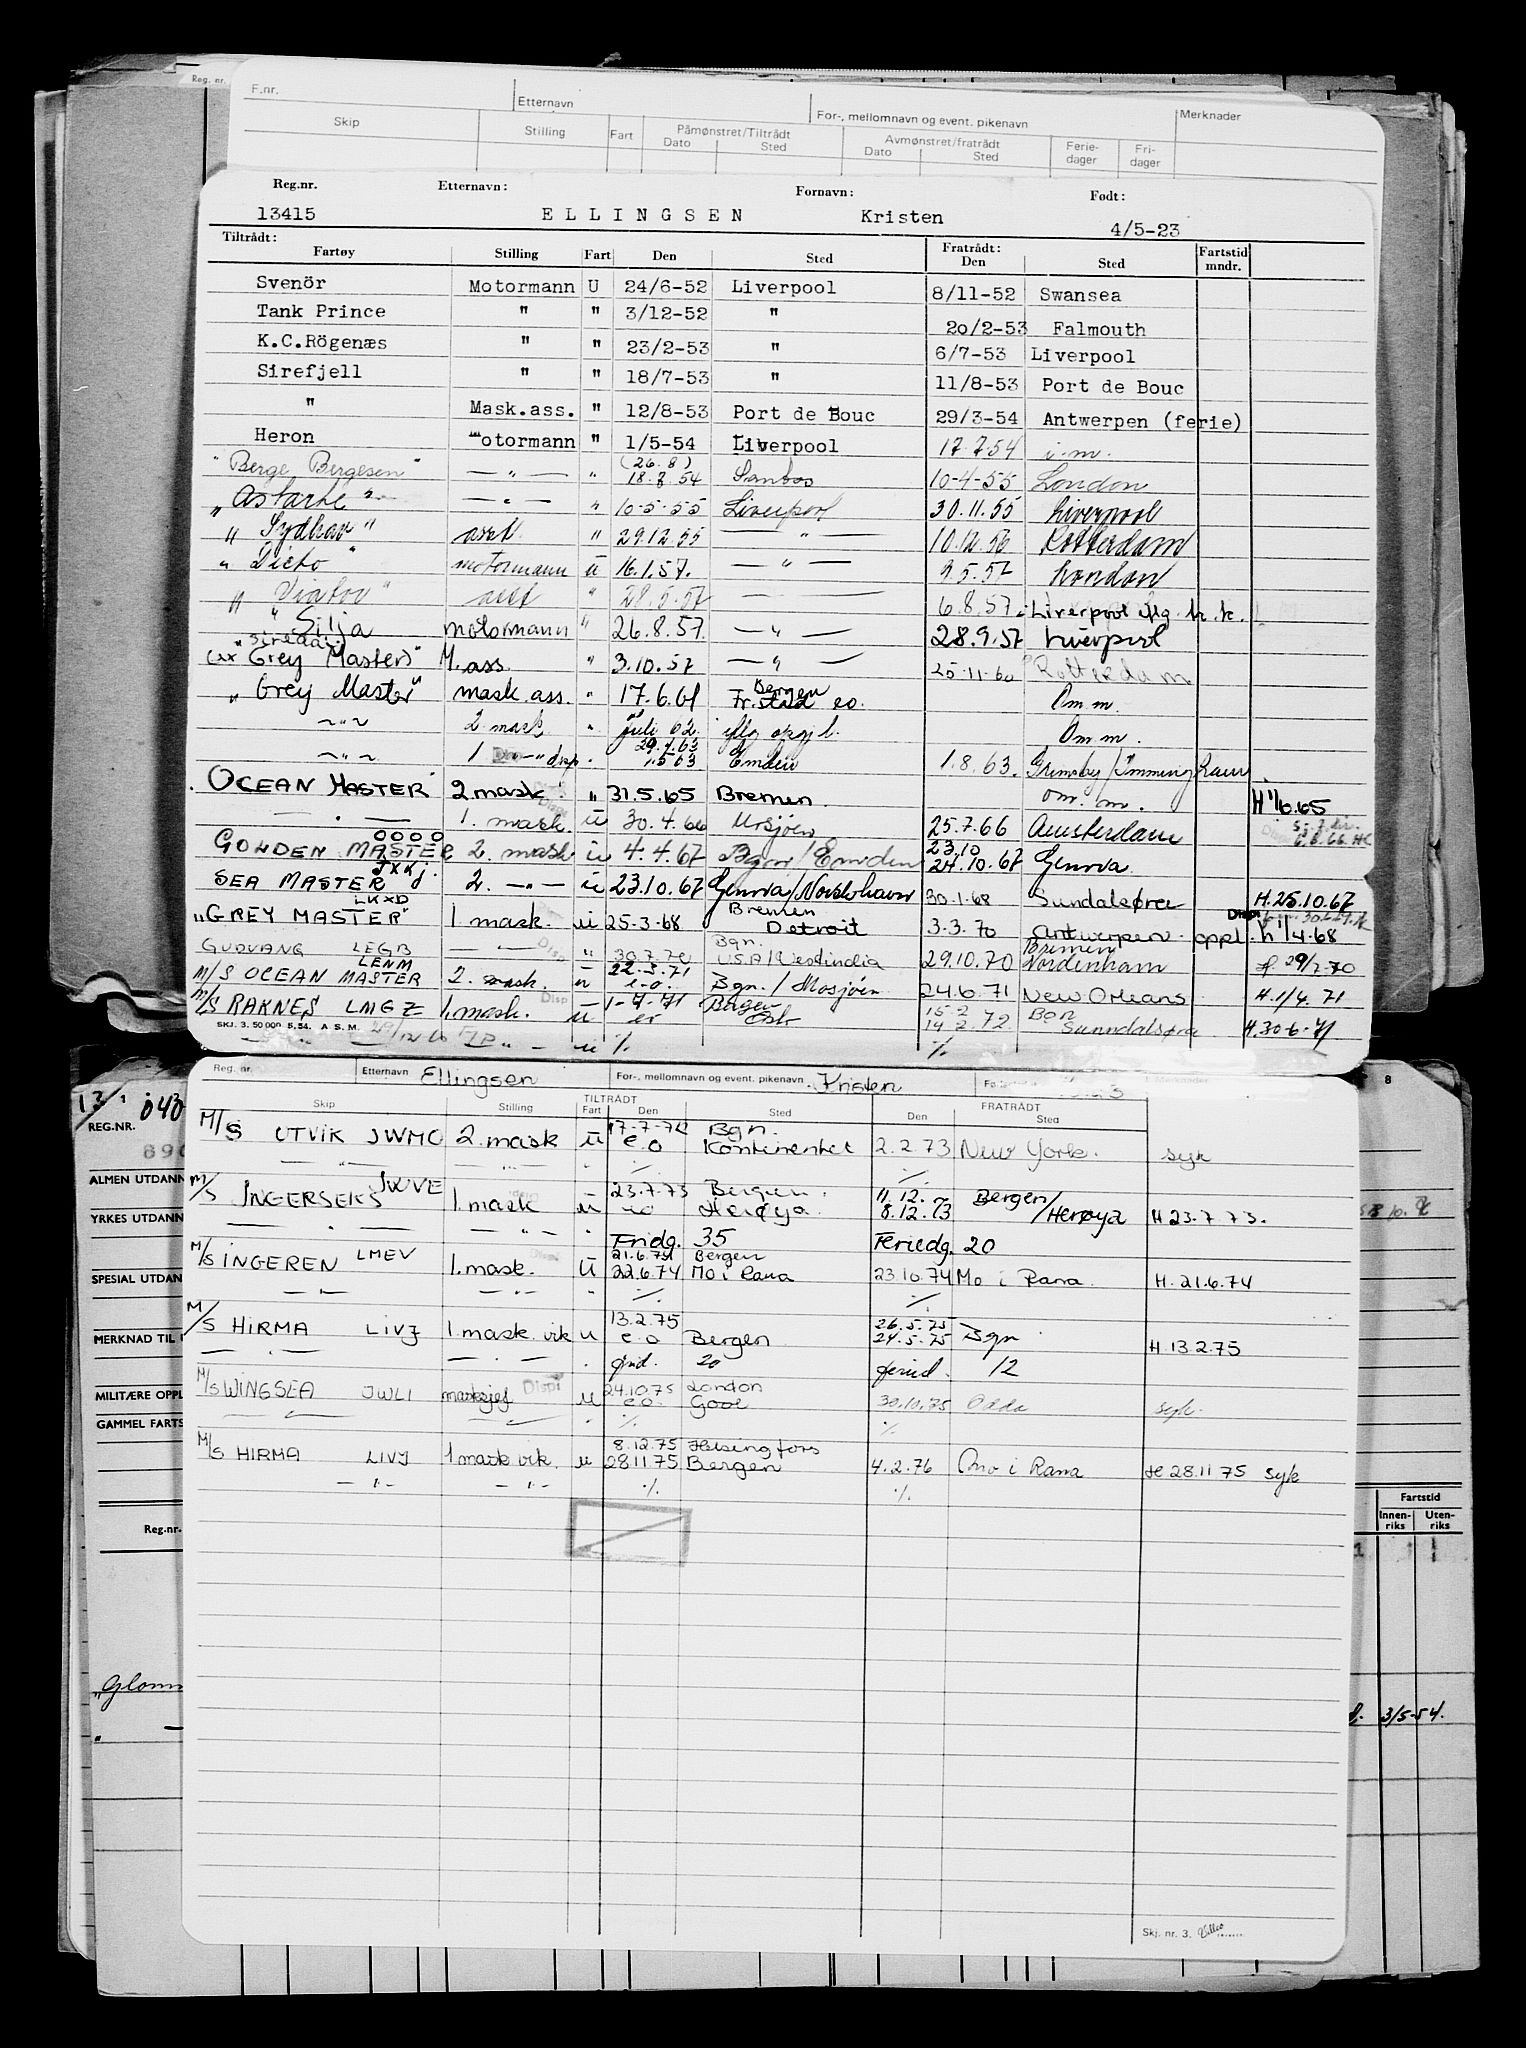 Reg. nr.
F.nr. Etternavn For-, mellomnavn og event. pikenavn Merknader
Skip Stilling Fart Påmønstret/Tiltrådt Avmønstret/fratrådt Ferie- Fri-
Dato Sted Dato Sted dager dager
Reg.nr. Etternavn: Fornavn: Født:
13415 ELLINGSEN Kristen 4/5-23
Tiltrådt: Fratrådt: Fartstid
Fartøy Stilling Fart Den Sted Den Sted mndr.
Svenör Motormann U 24/6-52 Liverpool 8/11-52 Swansea
Tank Prince " " 3/12-52 " 20/2-53 Falmouth
K.C.Rögenæs " " 23/2-53 " 6/7-53 Liverpool
Sirefjell " " 18/7-53 " 11/8-53 Port de Bouc
" Mask.ass. " 12/8-53 Port de Bouc 29/3-54 Antwerpen (ferie)
Heron Motormann " 1/5-54 Liverpool 17.7.54 i.m.
"Berge Bergesen" — " — " (26.8) 18.8.54 Santos 10-4-55 London
"Astarte" — " — " 10-5-55 Liverpool 30.11.55 Liverpool
"Sydhav" asst " 29.12.55 — " — 10.12.56 Rotterdam
"Dicto" motormann u 16.1.57. — " — 9.5.57 London
"Viator" asst " 28.5.57 — 6.8.57 Liverpool iflg. h.k.
"Silja motormann " 26.8.57. — " — 28.9.57 Liverpool
"Grey Master" M.ass. " 3.10.57 — " — 25-11-60 Rotterdam
"Grey Master" mask.ass. " 17.6.61 Bergen Fr.stad eo. Om m.
~ " ~ 2. mask. " juli 62. iflg oppg. Om m.
~ " ~ 1 — " — disp " 29.4.63 1.5.63 Emden 1.8.63. Grimsby/Immingham
OCEAN MASTER 2.mask. " 31.5.65 Bremen. om. m. H 1/6.65
— " — 1. mask. u 30.4.66 Mosjøen 25.7.66 Amsterdam
GOLDEN MASTER 2. mask u 4.4.67 Bgn/Emden 23.10 24.10.67 Genova
SEA MASTER JXKJ 2. — " — u 23.10.67 Genova/Nordenhavn 30.1.68 Sundalsøra H.25.10.67
"GREY MASTER" LKXD 1. mask. u 25-3-68 Bremen Detroit 3.3.70 Antwerpen oppl. H 1/4-68
GUDVANG LEGB — " — Disp " 30.7.70 Bgn. USA/Westindia 29.10.70 Bremen Nordenham H 29/7-70
M/S OCEAN MASTER LENM 2. mask. u 22.3.71 e-o. Bgn./Mosjøen 24.6.71 New Orleans H.1/4.71
M/S RAKNES LMGZ 1.mask. Disp u 1-7-71 eo Bergen Oslo 15-2 14-2.72 Bgn Sunndalsøra H.30-6-71
SKJ. 3. 50 000. 5.54. A S.M. — " — u ⁒ ⁒
Reg. nr. Etternavn Ellingsen For-, mellomnavn og event. pikenavn Kristen Merknader
TILTRÅDT FRATRÅDT
Skip Stilling Fart Den Sted Den Sted
M/S UTVIK JWMO 2. mask u 17-7-72 e.o Bgn. Kontinentet 2.2.73 New York. syk
— " — " ⁒ ⁒
M/S INGERSEKS JWVE 1. mask u 23.7.73 eo Bergen. Herøya. 11.12. 8.12.73 Bergen/Herøya H 23.7.73.
— " — " — " Fridg. 35 Feriedg. 20
M/S INGEREN LMEV 1. mask. U 21.6.74 22.6.74 Bergen Mo i Rana 23.10.74 Mo i Rana. H. 21.6.74
— " — " — ⁒ ⁒
M/S HIRMA LIVJ 1. mask. vik u 13.2.75 e.o Bergen 26.5.75 24.5.75 Bgn H.13.2.75
— " — " 20 feried. 12
M/S WINGSEA JWLI masksjef Disp u 24.10.75 e.o. London Goole 30.10.75 Odda syk.
— " — " ⁒ ⁒
M/S HIRMA LIVJ 1 mask vik. u 8.12.75 28.11.75 Helsingfors Bergen 4.2.76 Mo i Rana H 28.11.75 syk
— " — — " — ⁒ ⁒
Skj. nr. 3.
REG.NR.
ALMEN UTDANN
YRKES UTDANN
SPESIAL UTDAN
MERKNAD TIL
MILITÆRE OPPL
GAMMEL FARTS
Reg.nr.
8
Fartstid
Innen-riks Uten-riks
"Glomm
3/5-54.